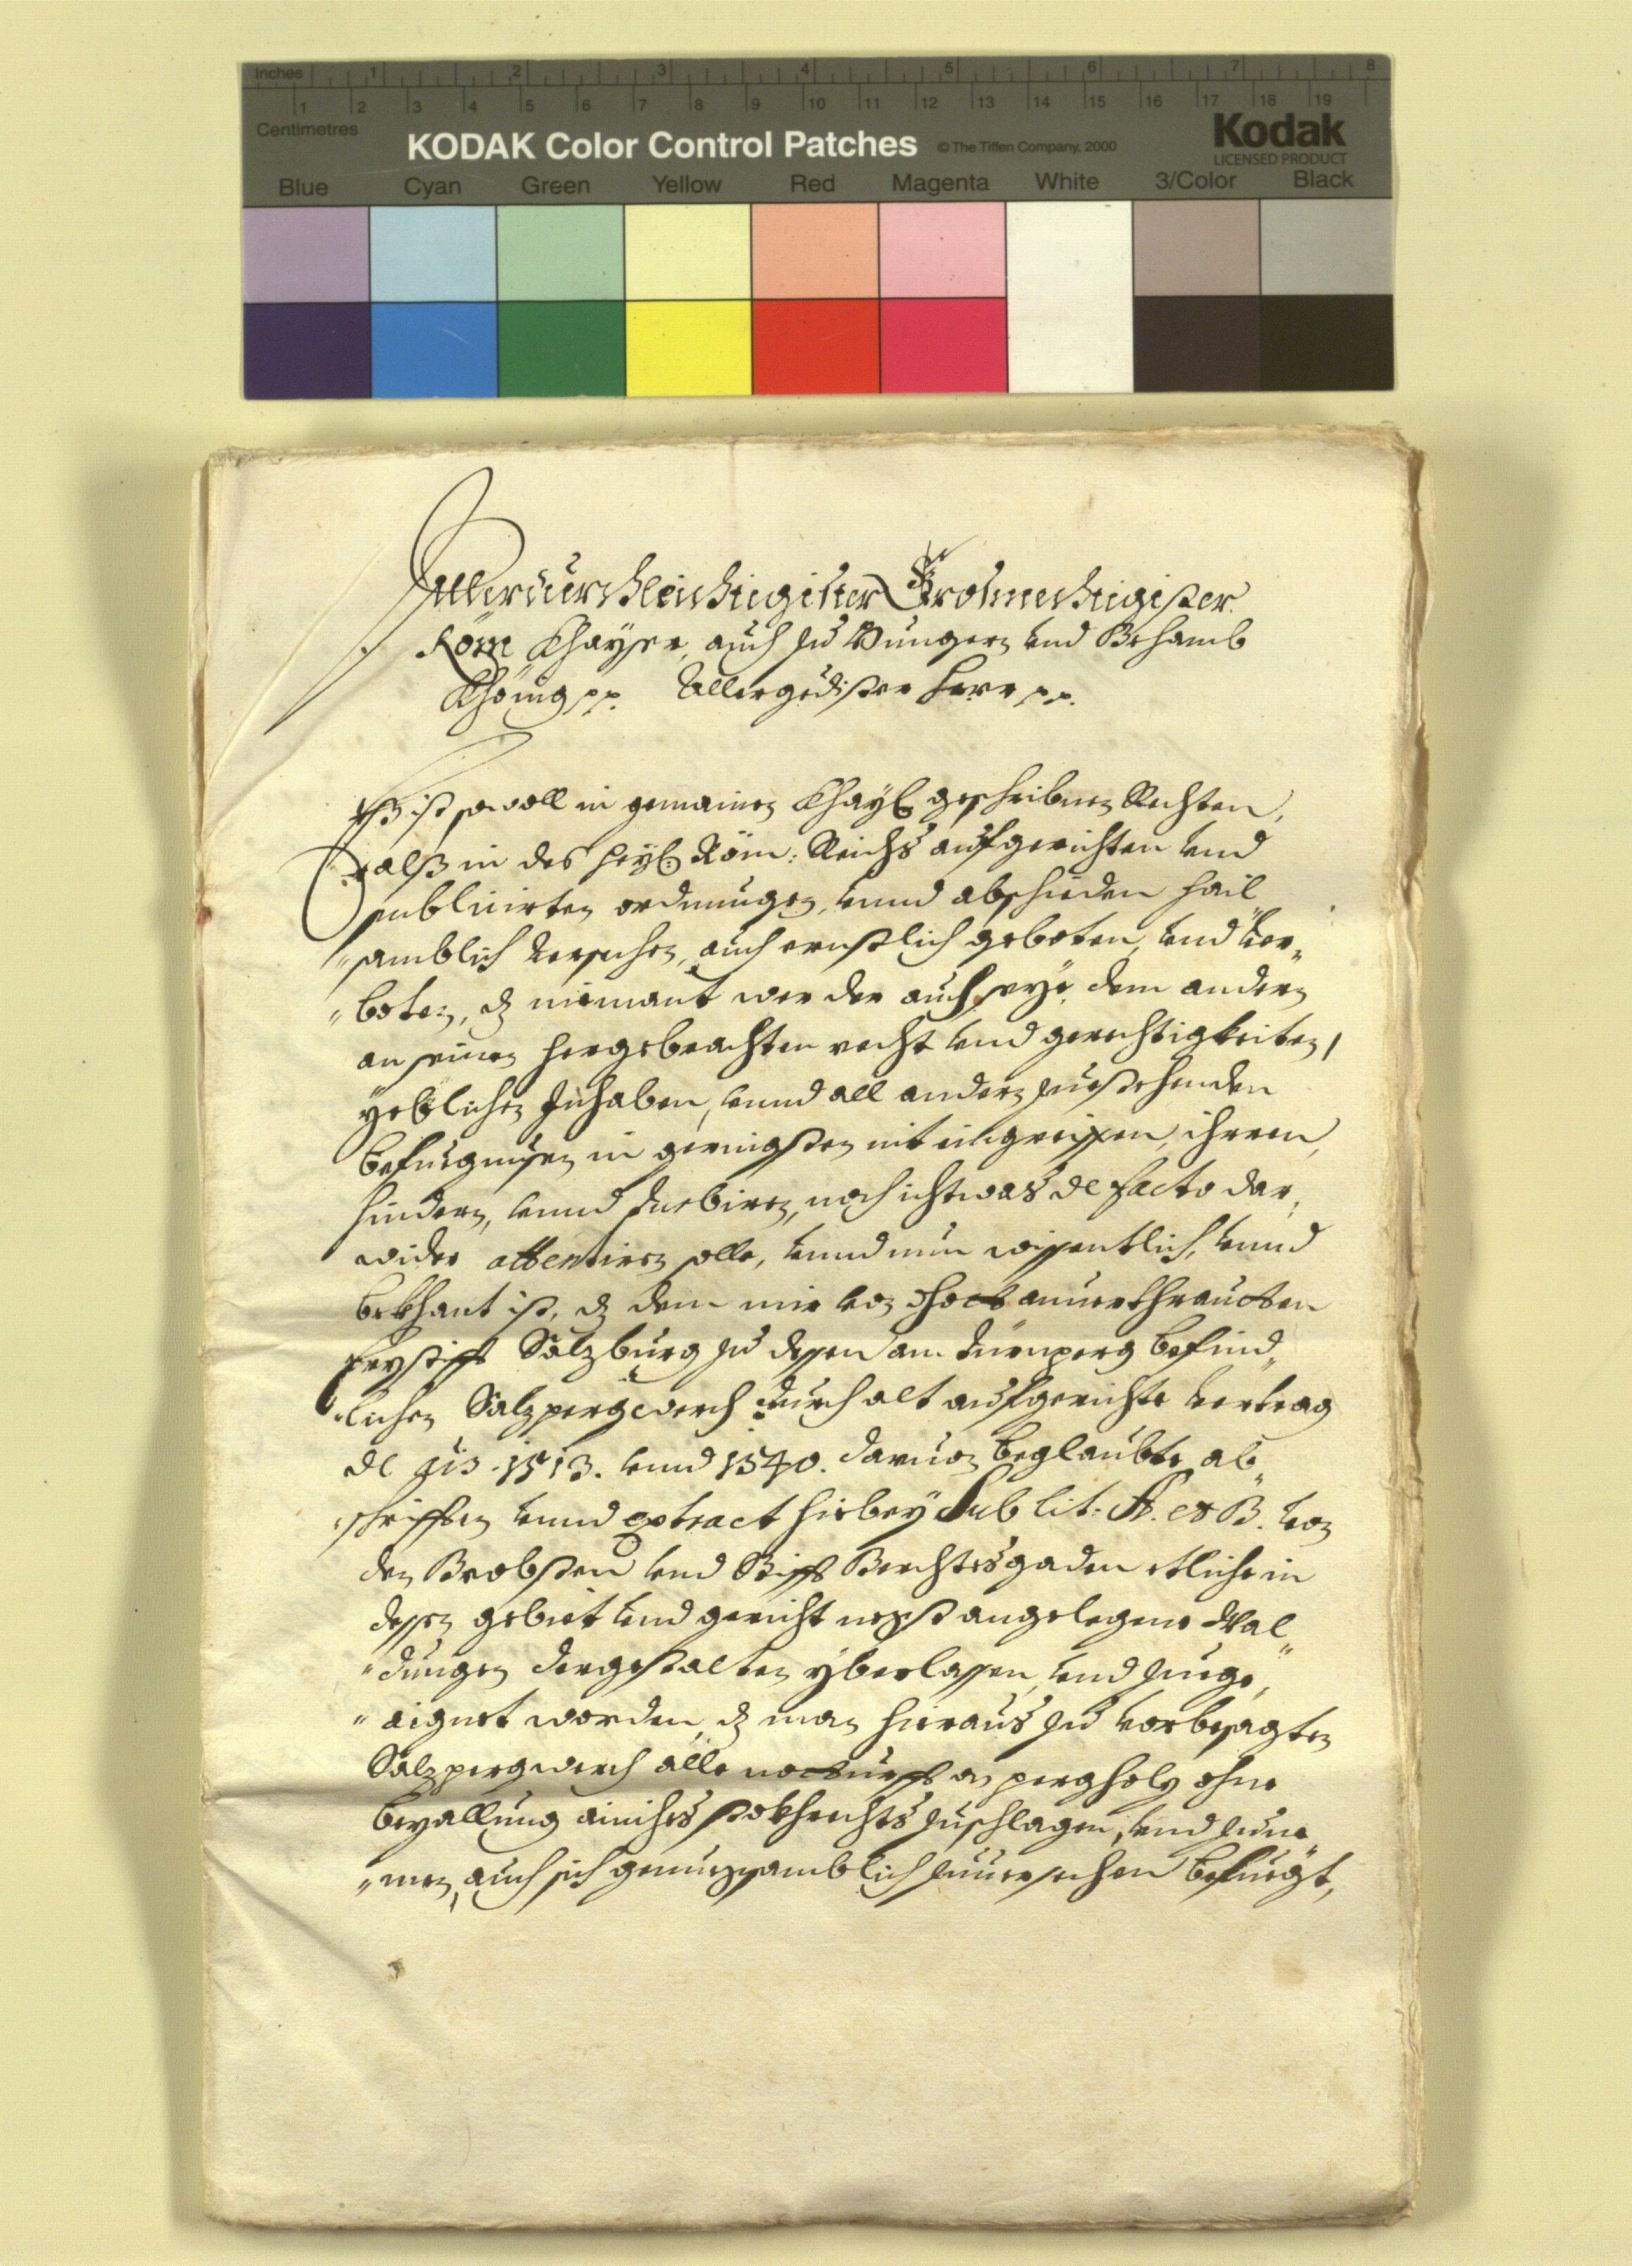 Inches 1 2 3 4 5 6 7 8
1 2 3 4 5 6 7 8 9 10 11 12 13 14 15 16 17 18 19
Centimetres
KODAK Color Control Patches © The Tiffen Company, 2000 Kodak
LICENSED PRODUCT
Blue Cyan Green Yellow Red Magenta White 3/Color Black
Allerdurchleichtigister Grosmechtigister
Röm Khayser, auch zu Hungern und Behamb
Khönig pp. Allergdister Herr pp.
Eß ist sowoll in gemainen Khayl geschribnen Rechten,
alß in des heyl: Röm: Reichs aufgerichten und
publicirten ordnungen, unnd abschieden hail„
„samblich versehen, auch ernstlich geboten, und ver„
„boten, dz niemant wer der auch seye, dem andern
an seinen hergebrachten recht und gerechtigkeiten,
yeblichen Inhaben, unnd all andern zuestehenden
befuegnusen in geringsten nit eingreiffen, ihrren,
hindern, unnd turbiren, noch ichtwas de facto dar„
wider attentiren solle, unnd nun wissentlich, unnd
bekhant ist, dz dem mir von Gott anuerthrauten
Erzstifft Salzburg zu dessen am Dürnperg befind„
„lichen Salzpergwerch durch alt aufgerichte vertrag
de ais. 1513. unnd 1540. daruon beglaubte ab„
„schrifften unnd extract hiebey Sub lit: A. et B. von
den Brobsten und Stifft Berchtesgaden etliche in
dessen gebiet und gericht negst angelegene Wal„
„dungen dergestalten yberlassen, und zuege„
„aignet worden, dz man hieraus zu vorbesagten
Salzpergwerch alle notturfft an pergholz ohne
bezallung ainiches stokhrechts zuschlagen, und zune„
„men, auch sich genuegsamblich zuuersehen befuegt,